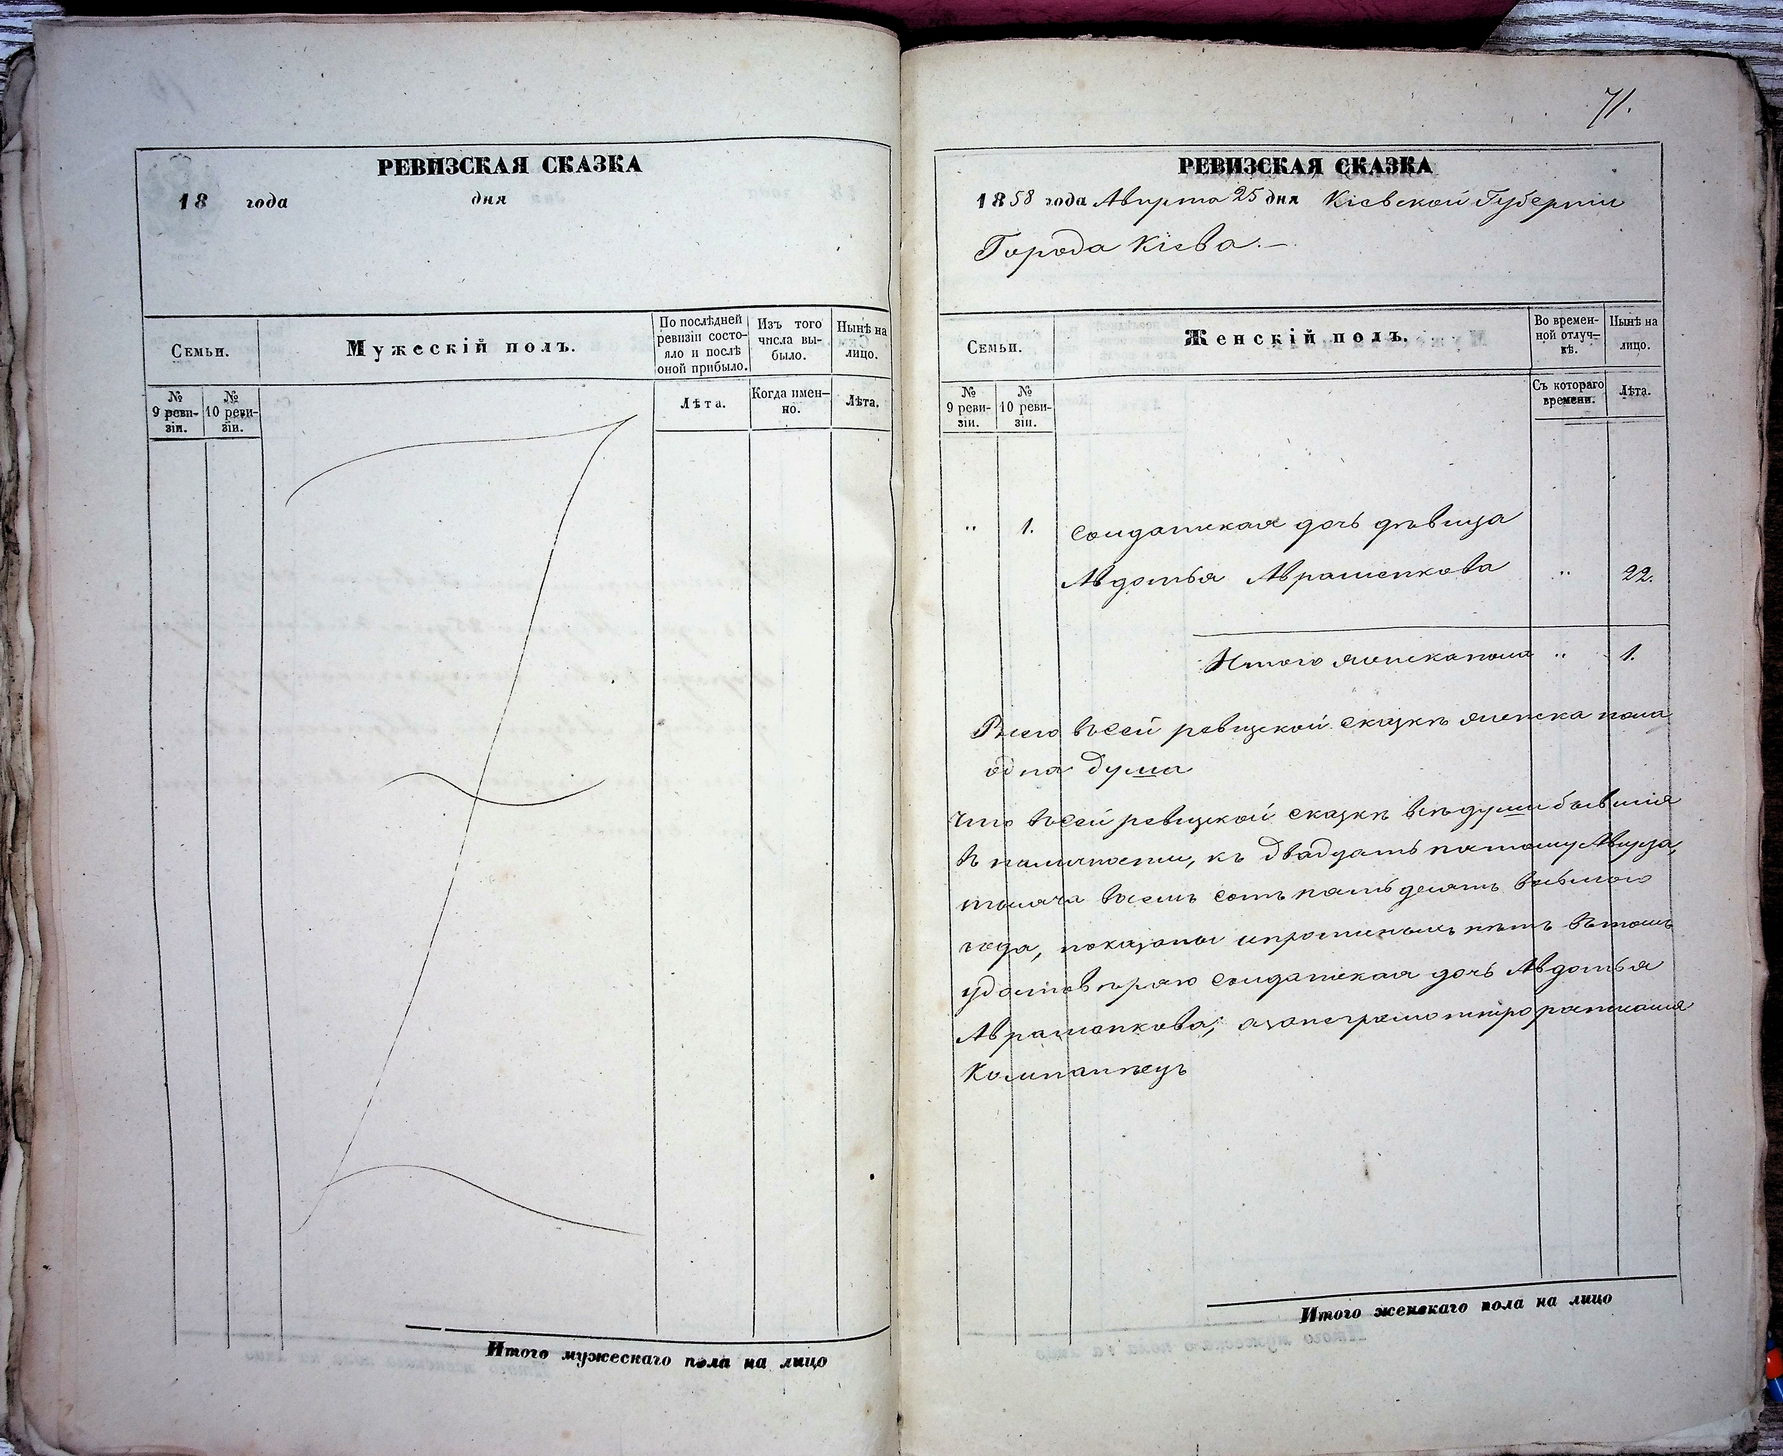 РЕВИЗСКАЯ СКАЗКА
18 года дня
Семьи.
Мужескій полъ.
По послѣдней ревизіи состояло и послѣ оной прибыло.
Изъ того числа выбыло.
Нынѣ на лицо.
№ 9 ревизіи.
№ 10 ревизіи.
Лѣта.
Когда именно.
Лѣта.
Итого мужескаго пола на лицо
71.
РЕВИЗСКАЯ СКАЗКА
1858 года Августа 25 дня Кіевской Губерніи
Города Кіева.—
Семьи.
Женскій полъ.
Во временной отлучкѣ.
Нынѣ на лицо.
№ 9 ревизіи.
№ 10 ревизіи.
Съ котораго времени.
Лѣта.
" 1. Солдатская дочь дѣвица
Авдотья Аврашенкова " 22.
Итого женска пола " 1.
Всего въ сей ревизской сказкѣ женска пола
одна душа
Что въ сей ревизской сказкѣ всѣ души бывшія
въ наличности, къ двадцать пятому Августа,
тысяча восемь сотъ пятьдесятъ восьмого
года, показаны и прописныхъ нѣтъ въ томъ
удостовѣряю солдатская дочь Авдотья
Аврашенкова; а за неграмотную росписался
Компанѣецъ
Итого женскаго пола на лицо